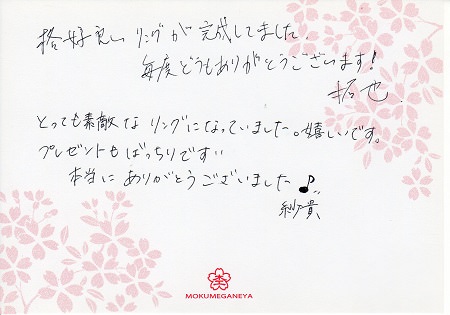 格好良いリングが完成してました。
毎度どうもありがとうございます!
拓也
とっても素敵なリングになっていました。嬉しいです。
プレゼントもばっちりです!!
本当にありがとうございました♪
紗貴
MOKUMEGANEYA